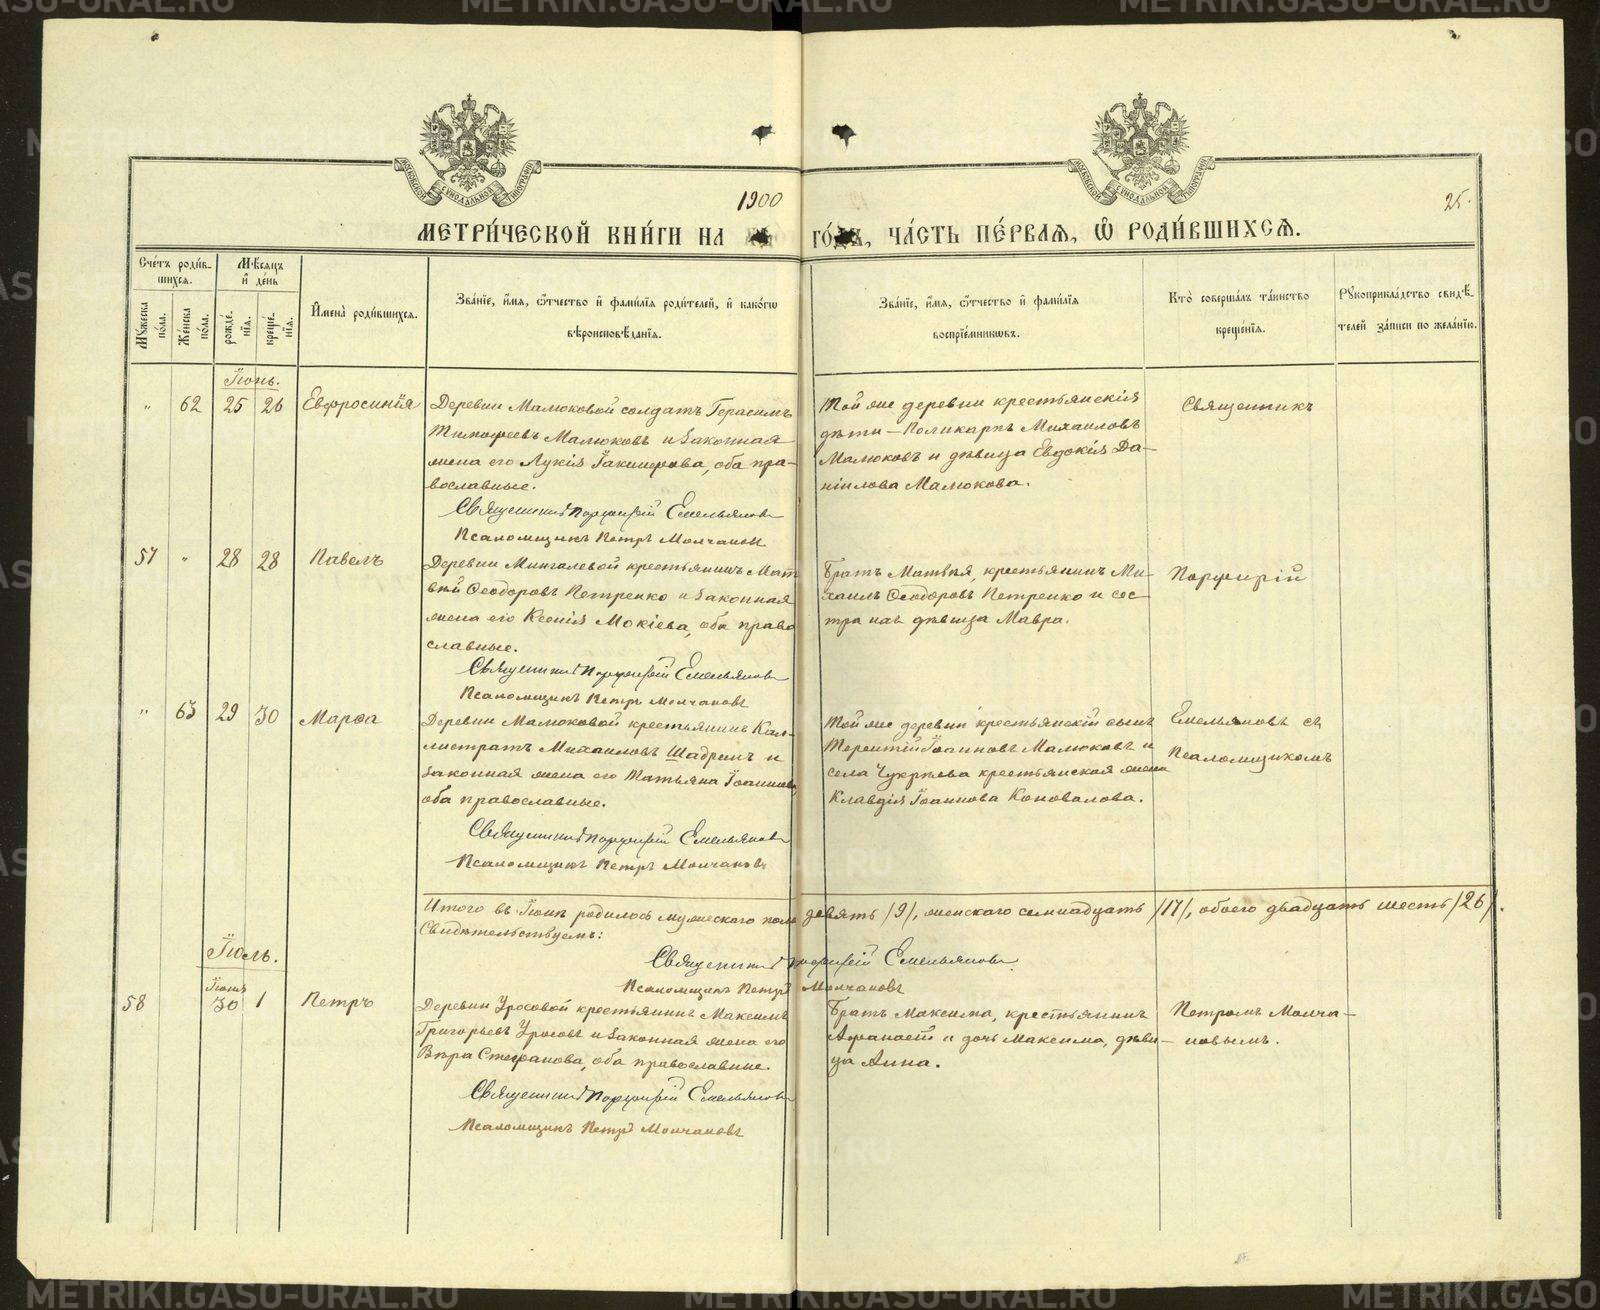 1900
25.
МЕТРИ́ЧЕСКОЙ КНИ́ГИ НА ГО́ДЪ, ЧА́СТЬ ПЕ́РВАѦ, Ѡ҆ РОДИ́ВШИХСѦ.
Сче́тъ роди́в-
шихсѧ.
Мѣ́сѧцъ
и҆ де́нь
Мꙋ́жеска
по́ла.
Же́нска
по́ла.
рожде́-
нїѧ.
креще́-
нїѧ.
И҆мена̀ роди́вшихсѧ.
Зва́нїе, и҆́мѧ, ѻ҆́тчество и҆ фами́лїѧ роди́телей, и҆ како́гѡ
вѣроисповѣ́данїѧ.
Зва́нїе, и҆́мѧ, ѻ҆́тчество и҆ фами́лїѧ
воспрїе́мникѡвъ.
Кто̀ соверша́лъ та́инство
креще́нїѧ.
Рꙋкоприкла́дство свидѣ́-
телей за́писи по жела́нїю.
Іюнь.
" 62 25 26 Евфросинія
Деревни Малюковой солдатъ Герасимъ
Тимофеевъ Малюковъ и законная
жена его Лукія Іакимова, оба пра-
вославные.
Священникъ Порфирій Емельяновъ
Псаломщикъ Петръ Молчановъ
Той же деревни крестьянскія
дѣти – Поликарпъ Михаиловъ
Малюковъ и дѣвица Евдокія Да-
ніилова Малюкова.
Священникъ
57 " 28 28 Павелъ
Деревни Мингалевой крестьянинъ Мат
вѣй Ѳеодоровъ Петренко и законная
жена его Ксенія Мокіева, оба право
славные.
Священникъ Порфирій Емельяновъ
Псаломщикъ Петръ Молчановъ
Братъ Матвѣя, крестьянинъ Ми-
хаилъ Ѳеодоровъ Петренко и сес-
тра ихъ дѣвица Мавра.
Порфирій
" 63 29 30 Марѳа
Деревни Малюковой крестьянинъ Кал-
листратъ Михаиловъ Шадринъ и
законная жена его Татьяна Іоаннова,
оба православные.
Священникъ Порфирій Емельяновъ
Псаломщикъ Петръ Молчановъ
Той же деревни крестьянскій сынъ
Терентій Іоанновъ Малюковъ и
села крестьянская жена
Клавдія Іоаннова Коновалова.
Емельяновъ съ
Псаломщикомъ
Итого въ Іюнѣ родилось мужескаго пола девять /9/, женскаго семнадцать /17/, обоего двадцать шесть /26/.
Свидѣтельствуемъ:
Священникъ Порфирій Емельяновъ.
Псаломщикъ Петръ Молчановъ
Іюль.
Іюня
58 30 1 Петръ
Деревни Уросовой крестьянинъ Максимъ
Григорьевъ Уросовъ и законная жена его
Вѣра Стефанова, оба православные.
Священникъ Порфирій Емельяновъ
Псаломщикъ Петръ Молчановъ
Братъ Максима, крестьянинъ
Афанасій и дочь Максима, дѣви-
ца Анна.
Петромъ Молча-
новымъ.
METRIKI.GASO-URAL.RU